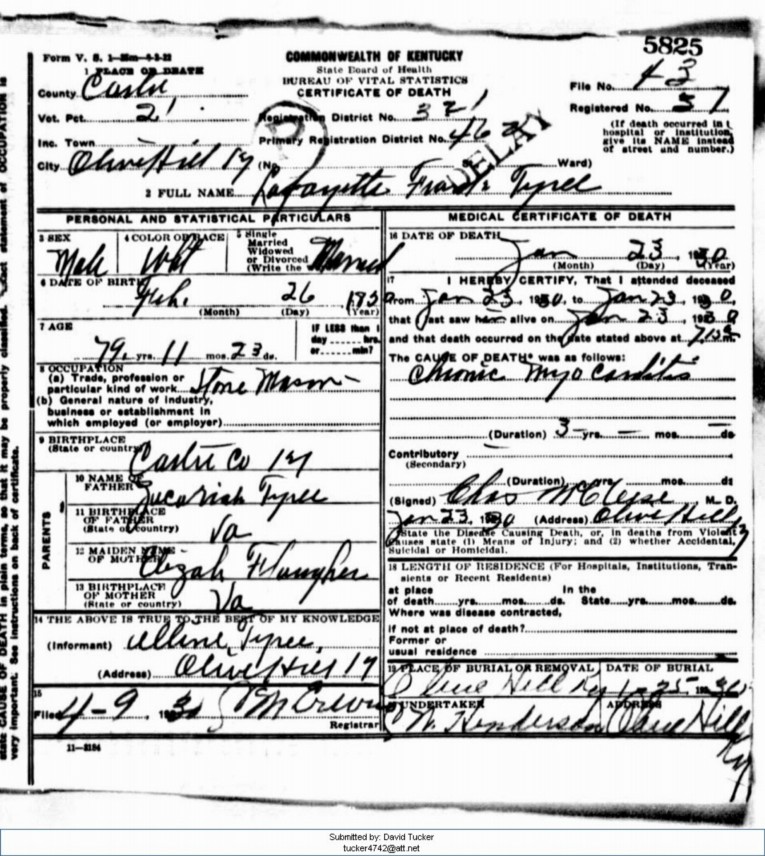 5825
Form V. S. 1
COMMONWEALTH OF KENTUCKY
State Board of Health
BUREAU OF VITAL STATISTICS
CERTIFICATE OF DEATH
1 PLACE OF DEATH
County Carter
File No. 43
Vot. Pct. 2
Registration District No. 321
Registered No. 57
Inc. Town
Primary Registration District No. 462
DELAY
(If death occurred in
hospital or institution,
give its NAME instead
of street and number.)
City Olive Hill Ky (No. Ward)
2 FULL NAME Lafayette Frank Tyree
PERSONAL AND STATISTICAL PARTICULARS
3 SEX Male
4 COLOR OR RACE Wht
5 Single
Married
Widowed
or Divorced
(Write the Married
6 DATE OF BIRTH Feb. 26
(Month) (Day) (Year)
7 AGE
79 yrs. 11 mos. 23 ds.
IF LESS than 1
day hrs.
or min?
8 OCCUPATION
(a) Trade, profession or
particular kind of work Stone Mason
(b) General nature of industry,
business or establishment in
which employed (or employer)
9 BIRTHPLACE
(State or country) Carter Co Ky
PARENTS
10 NAME OF
FATHER Zucariah Tyree
11 BIRTHPLACE
OF FATHER
(State or country) Va
12 MAIDEN NAME
OF MOTHER Elizah Flaugher
13 BIRTHPLACE
OF MOTHER
(State or country) Va
14 THE ABOVE IS TRUE TO THE BEST OF MY KNOWLEDGE
(Informant) Tyree
(Address) Olive Hill Ky
15
Filed 4-9, 1930
Registrar
11-2184
MEDICAL CERTIFICATE OF DEATH
16 DATE OF DEATH
Jan 23, 1930
(Month) (Day) (Year)
17 I HEREBY CERTIFY, That I attended deceased
from Jan 23, 1930, to Jan 23, 1930,
that I last saw him alive on Jan 23, 1930
and that death occurred on the date stated above at
The CAUSE OF DEATH* was as follows:
Chronic Myocarditis
(Duration) 3 yrs. mos. ds
Contributory
(Secondary)
(Duration) yrs. mos. ds.
(Signed) Chas McCleese M. D.
Jan 23, 1930 (Address) Olive Hill Ky
*State the Disease Causing Death, or, in deaths from Violent
Causes state (1) Means of Injury; and (2) whether Accidental,
Suicidal or Homicidal.
18 LENGTH OF RESIDENCE (For Hospitals, Institutions, Tran-
sients or Recent Residents)
at place In the
of death yrs. mos. ds. State yrs. mos. ds.
Where was disease contracted,
if not at place of death?
Former or
usual residence
19 PLACE OF BURIAL OR REMOVAL DATE OF BURIAL
Olive Hill Ky 1-25- 1930
20 UNDERTAKER ADDRESS
Henderson Olive Hill
Ky
state CAUSE OF DEATH in plain terms, so that it may be properly classified. Exact statement of OCCUPATION is
very important. See instructions on back of certificate.
Submitted by: David Tucker
tucker4742@att.net